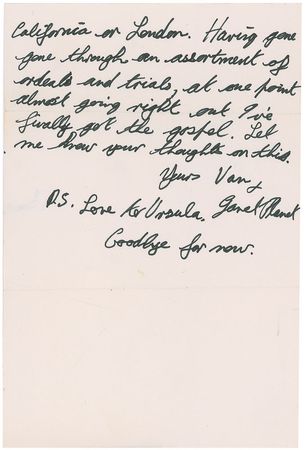 California or London. Having gone
gone through an assortment of
ordeals and trials, at one point
almost going right out I've
finally got the gospel. Let
me know your thoughts on this.
Yours Van x
P.S. Love to Ursula. Janet Planet
Goodbye for now.